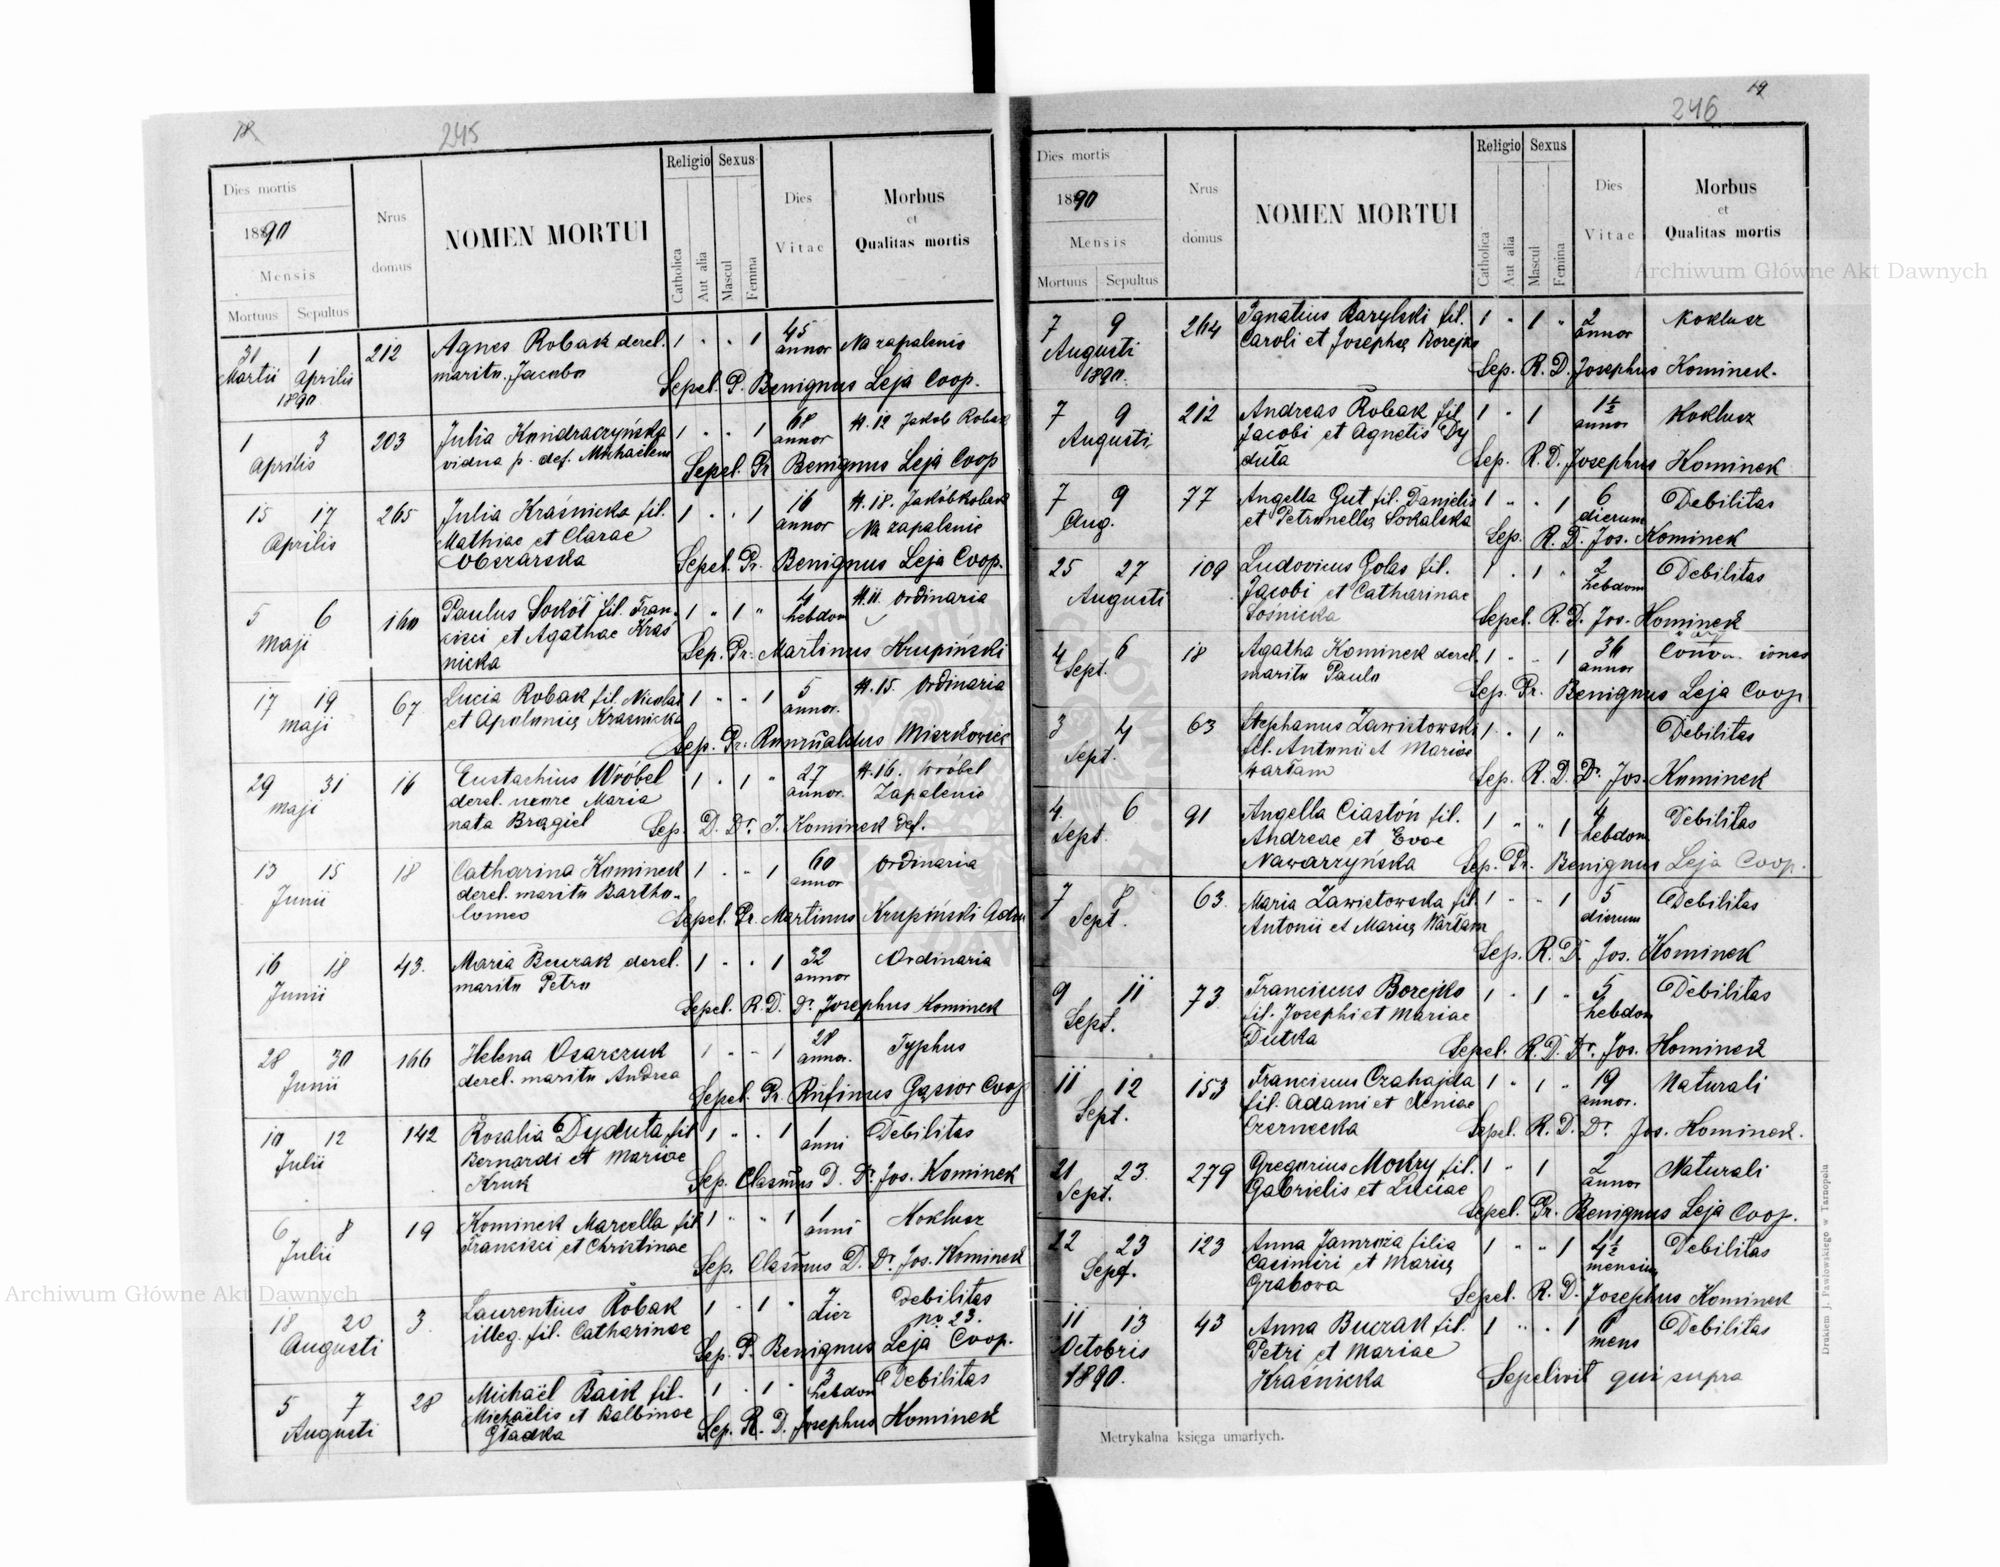 18
245
Dies mortis
1890
Mensis
Mortuus Sepultus
Nrus
domus
NOMEN MORTUI
Religio
Catholica
Aut alia
Sexus
Mascul
Femina
Dies
Vitae
Morbus
et
Qualitas mortis
31 1 212 Agnes Robak derel. 1 " " 1 45 Na zapalenie
Martii Aprilis marito Jacobo annor
1890 Sepel. P. Benignus Leja Coop.
1 3 203 Julia Kondraczyńska 1 " " 1 68 H. 12 Jakób Robak
Aprilis vidua p. def. Michaelem annor
Sepel. Pr Benignus Leja Coop
15 17 265 Julia Kraśnicka fil. 1 " " 1 16 H. 18. Jakób Robak
Aprilis Mathiae et Clarae annor Na zapalenie
Obszarska Sepel. Pr. Benignus Leja Coop.
5 6 160 Paulus Sokół fil. Fran- 1 " 1 " 4 H. 11. Ordinaria
Maji cisci et Agathae Kraś hebdom
nicka Sep. Pr. Martinus Krupiński
17 19 67 Lucia Robak fil. Nicolai 1 " " 1 5 H. 15. Ordinaria
Maji et Apolonię Kraśnicka annor.
Sep. Pr. Romualdus
29 31 16 Eustachius Wróbel 1 " 1 " 27 H. 16. Wróbel
Maji derel. uxore Maria annor. Zapalenie
nata Brągiel Sep. D. Dr. J. Kominek Def.
13 15 18 Catharina Kominek 1 " " 1 60 Ordinaria
Junii derel. marito Bartho- annor
lomeo Sepel. Pr. Martinus Krupiński Adm
16 18 43. Maria Buczak derel. 1 " " 1 32 Ordinaria
Junii marito Petro annor
Sepel. R. D. Dr Josephus Kominek
28 30 166 Helena Osarczuk 1 " " 1 28 Typhus
Junii derel. marito Andrea annor.
Sepel. Pr. Rufinus Gąsior Coop
10 12 142 Rosalia Dyduła fil 1 " " 1 1 Debilitas
Julii Bernardi et Mariae anni
Kruk Sep. D. Dr Jos. Kominek
6 8 19 Kominek Marcella fil 1 " " 1 1 Koklusz
Julii Francisci et Christinae anni
Sep. D. Dr. Jos. Kominek
18 20 3. Laurentius Robak 1 " 1 " 7 Debilitas
Augusti illeg. fil. Catharinae dier No 23.
Sep. P. Benignus Leja Coop.
5 7 28 Michaël Baik fil. 1 " 1 " 3 Debilitas
Augusti Michaëlis et Balbinae hebdom
Gładka Sep. R. D. Josephus Kominek
19
246
Dies mortis
1890
Mensis
Mortuus Sepultus
Nrus
domus
NOMEN MORTUI
Religio
Catholica
Aut alia
Sexus
Mascul
Femina
Dies
Vitae
Morbus
et
Qualitas mortis
7 9 264 Ignatius Barylski fil. 1 " 1 " 2 Koklusz
Augusti Caroli et Josephę Borejko annor
1890. Sep. R. D. Josephus Kominek.
7 9 212 Andreas Robak fil 1 " 1 1½ Koklusz
Augusti Jacobi et Agnetis Dy annor
duła Sep. R. D. Josephus Kominek
7 9 77 Angella Gut fil. Danielis 1 " " 1 6 Debilitas
Aug. et Petronellę Sokalska dierum
Sep. R. D. Jos. Kominek
25 27 109 Ludovicus Golas fil. 1 " 1 " 2 Debilitas
Augusti Jacobi et Catharinae hebdom
Sośnicka Sepel. R. D. Jos. Kominek
4 6 18 Agatha Kominek derel. 1 " " 1 36
Sept. marito Paulo annor
Sep. Pr. Benignus Leja Coop
3 4 63 Stephanus Zawistowski 1 " 1 " Debilitas
Sept. fil. Antonii et Mariae
Wartam Sep. R. D. Dr. Jos. Kominek
4. 6 91 Angella Ciastoń fil. 1 " " 1 4 Debilitas
Sept. Andreae et Evae hebdom
Nawarzyńska Sep. Pr. Benignus Leja Coop.
7 8 63. Maria Zawistowska fil. 1 " " 1 5 Debilitas
Sept. Antonii et Marię Wartam dierum
Sep. R. D. Jos. Kominek
9 11 73 Franciscus Borejko 1 " 1 " 5 Debilitas
Sept. fil. Josephi et Mariae hebdom
Dutka Sepel. R. D. Dr. Jos. Kominek
11 12 153 Franciscus Czahajda 1 " 1 " 19 Naturali
Sept. fil. Adami et Xeniae annor.
Czernecka Sepel. R. D. Dr. Jos. Kominek.
21 23. 279 Gregorius Mokry fil. 1 " 1 2 Naturali
Sept. Gabrielis et Luciae annor
Sepel. Pr. Benignus Leja Coop.
22 23 123 Anna Jamroża filia 1 " " 1 4½ Debilitas
Sept. Casimiri et Marię mensium
Grabova Sepel. R. D. Josephus Kominek
11 13 43 Anna Buczak fil. 1 " " 1 6 Debilitas
Octobris Petri et Mariae mens
1890. Kraśnicka Sepelivit qui supra
Metrykalna księga umarłych.
Drukiem J. Pawłowskiego w Tarnopolu
Archiwum Główne Akt Dawnych
Archiwum Główne Akt Dawnych